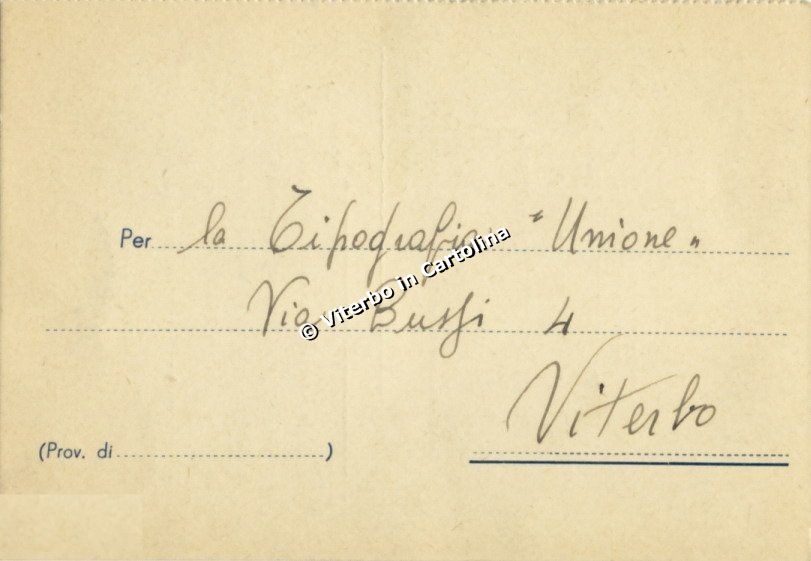 Per la Tipografia "Unione"
Via Bussi 4
Viterbo
(Prov. di ....................)
© Viterbo in Cartolina